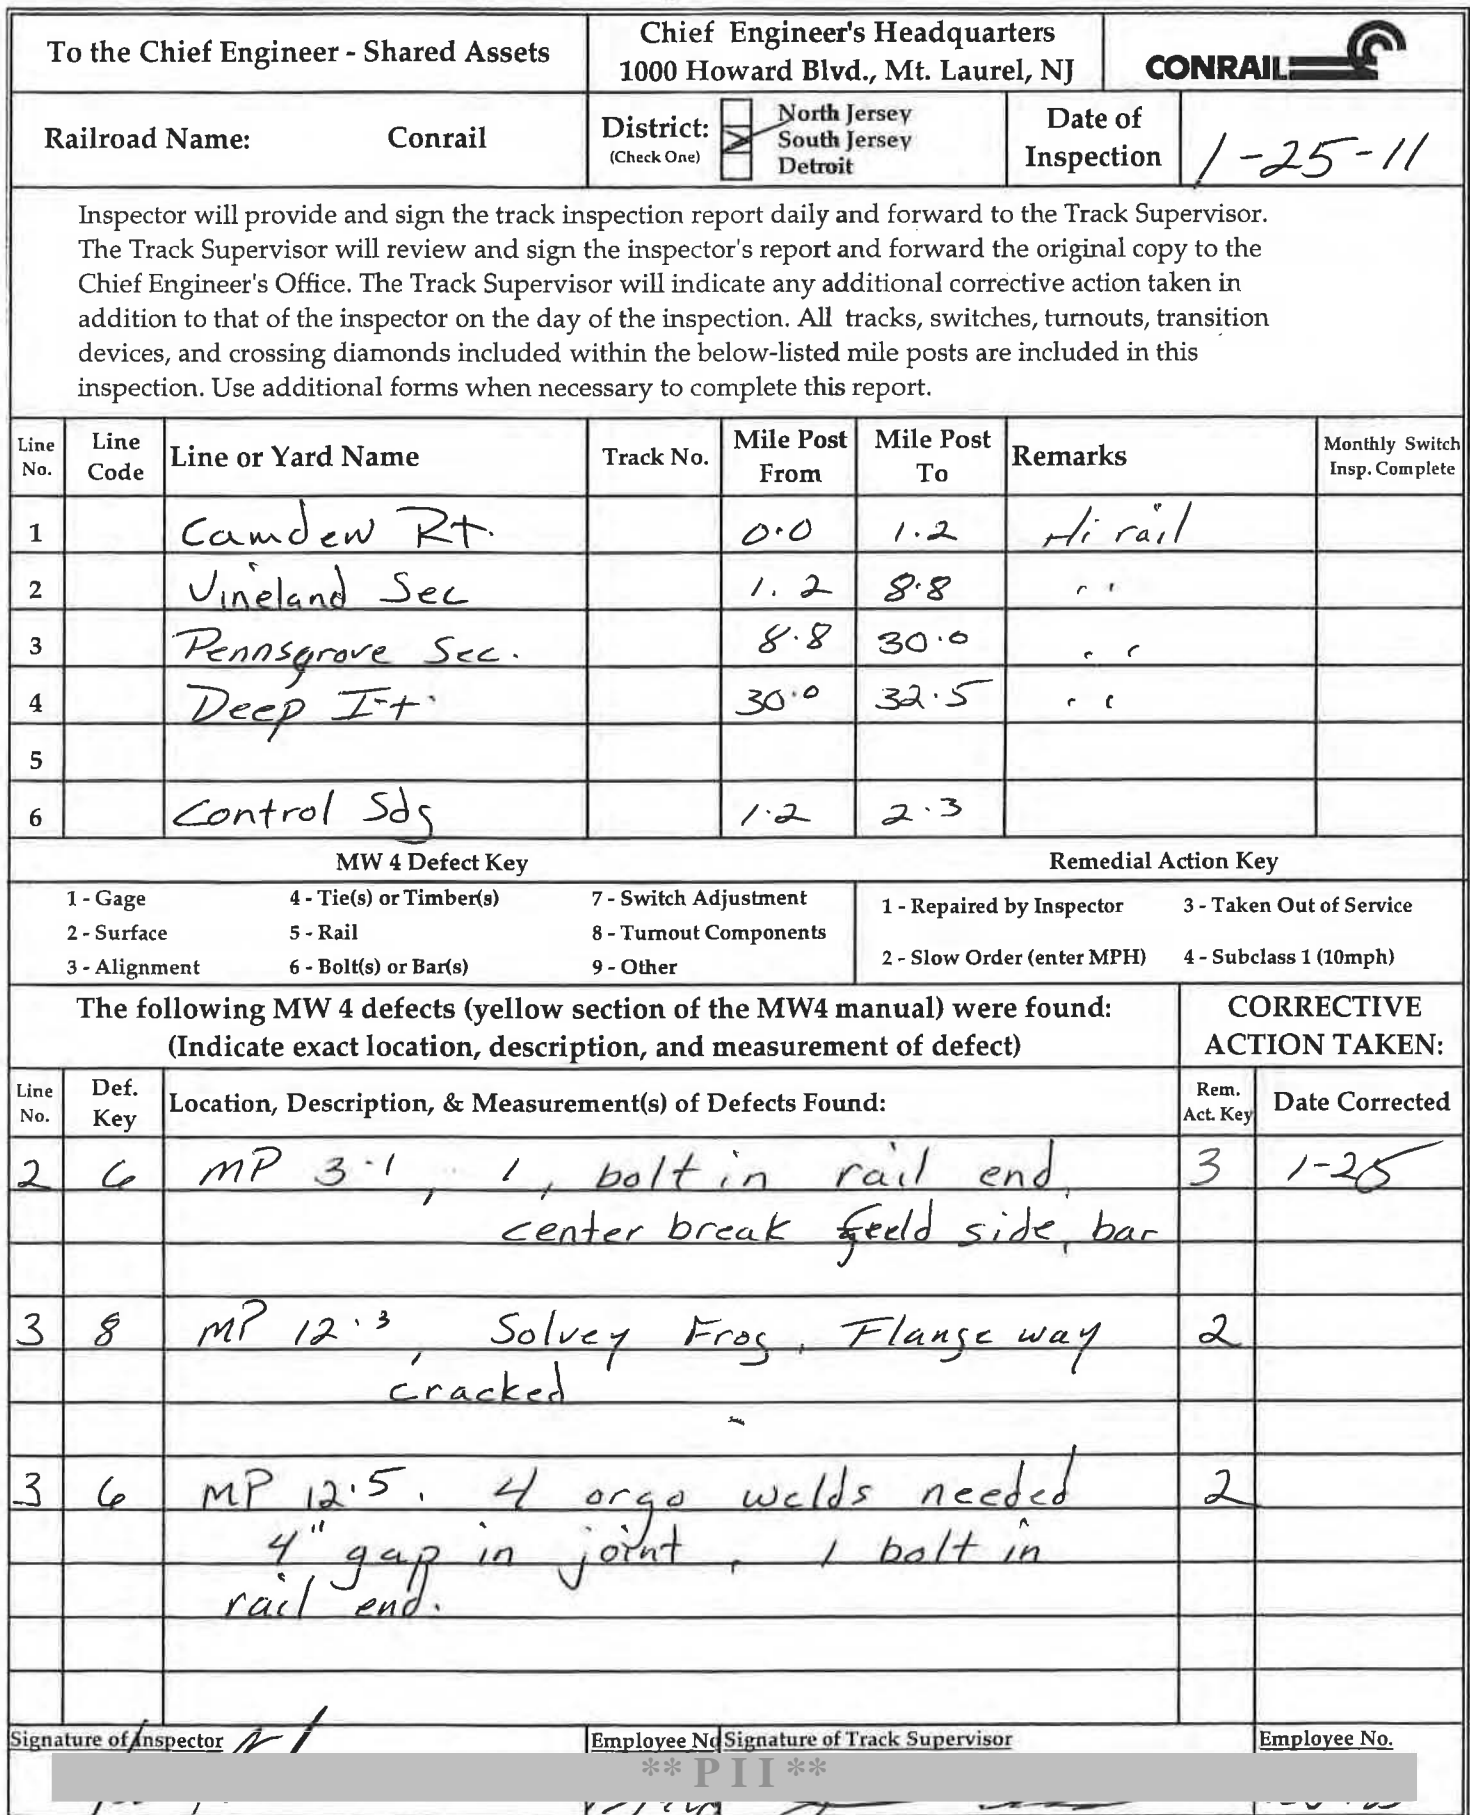 To the Chief Engineer - Shared Assets
Chief Engineer's Headquarters
1000 Howard Blvd., Mt. Laurel, NJ
CONRAIL
Railroad Name: Conrail
District:
(Check One)
North Jersey
South Jersey
Detroit
Date of
Inspection
1-25-11
Inspector will provide and sign the track inspection report daily and forward to the Track Supervisor.
The Track Supervisor will review and sign the inspector's report and forward the original copy to the
Chief Engineer's Office. The Track Supervisor will indicate any additional corrective action taken in
addition to that of the inspector on the day of the inspection. All tracks, switches, turnouts, transition
devices, and crossing diamonds included within the below-listed mile posts are included in this
inspection. Use additional forms when necessary to complete this report.
Line No. Line Code Line or Yard Name Track No. Mile Post From Mile Post To Remarks Monthly Switch Insp. Complete
1 Camden Rt. 0.0 1.2 Hi rail
2 Vineland Sec 1.2 8.8 " "
3 Pennsgrove Sec. 8.8 30.0 " "
4 Deep 30.0 32.5 " "
5
6 Control Sdg 1.2 2.3
MW 4 Defect Key Remedial Action Key
1 - Gage 4 - Tie(s) or Timber(s) 7 - Switch Adjustment 1 - Repaired by Inspector 3 - Taken Out of Service
2 - Surface 5 - Rail 8 - Turnout Components
3 - Alignment 6 - Bolt(s) or Bar(s) 9 - Other 2 - Slow Order (enter MPH) 4 - Subclass 1 (10mph)
The following MW 4 defects (yellow section of the MW4 manual) were found:
(Indicate exact location, description, and measurement of defect)
CORRECTIVE
ACTION TAKEN:
Line No. Def. Key Location, Description, & Measurement(s) of Defects Found: Rem. Act. Key Date Corrected
2 6 MP 3.1, 1, bolt in rail end, 3 1-25
center break feeld side, bar
3 8 MP 12.3, Solvey Frog, Flange way 2
cracked
3 6 MP 12.5. 4 orgo welds needed 2
4" gap in joint, 1 bolt in
rail end.
Signature of Inspector Employee No Signature of Track Supervisor Employee No.
** P I I **